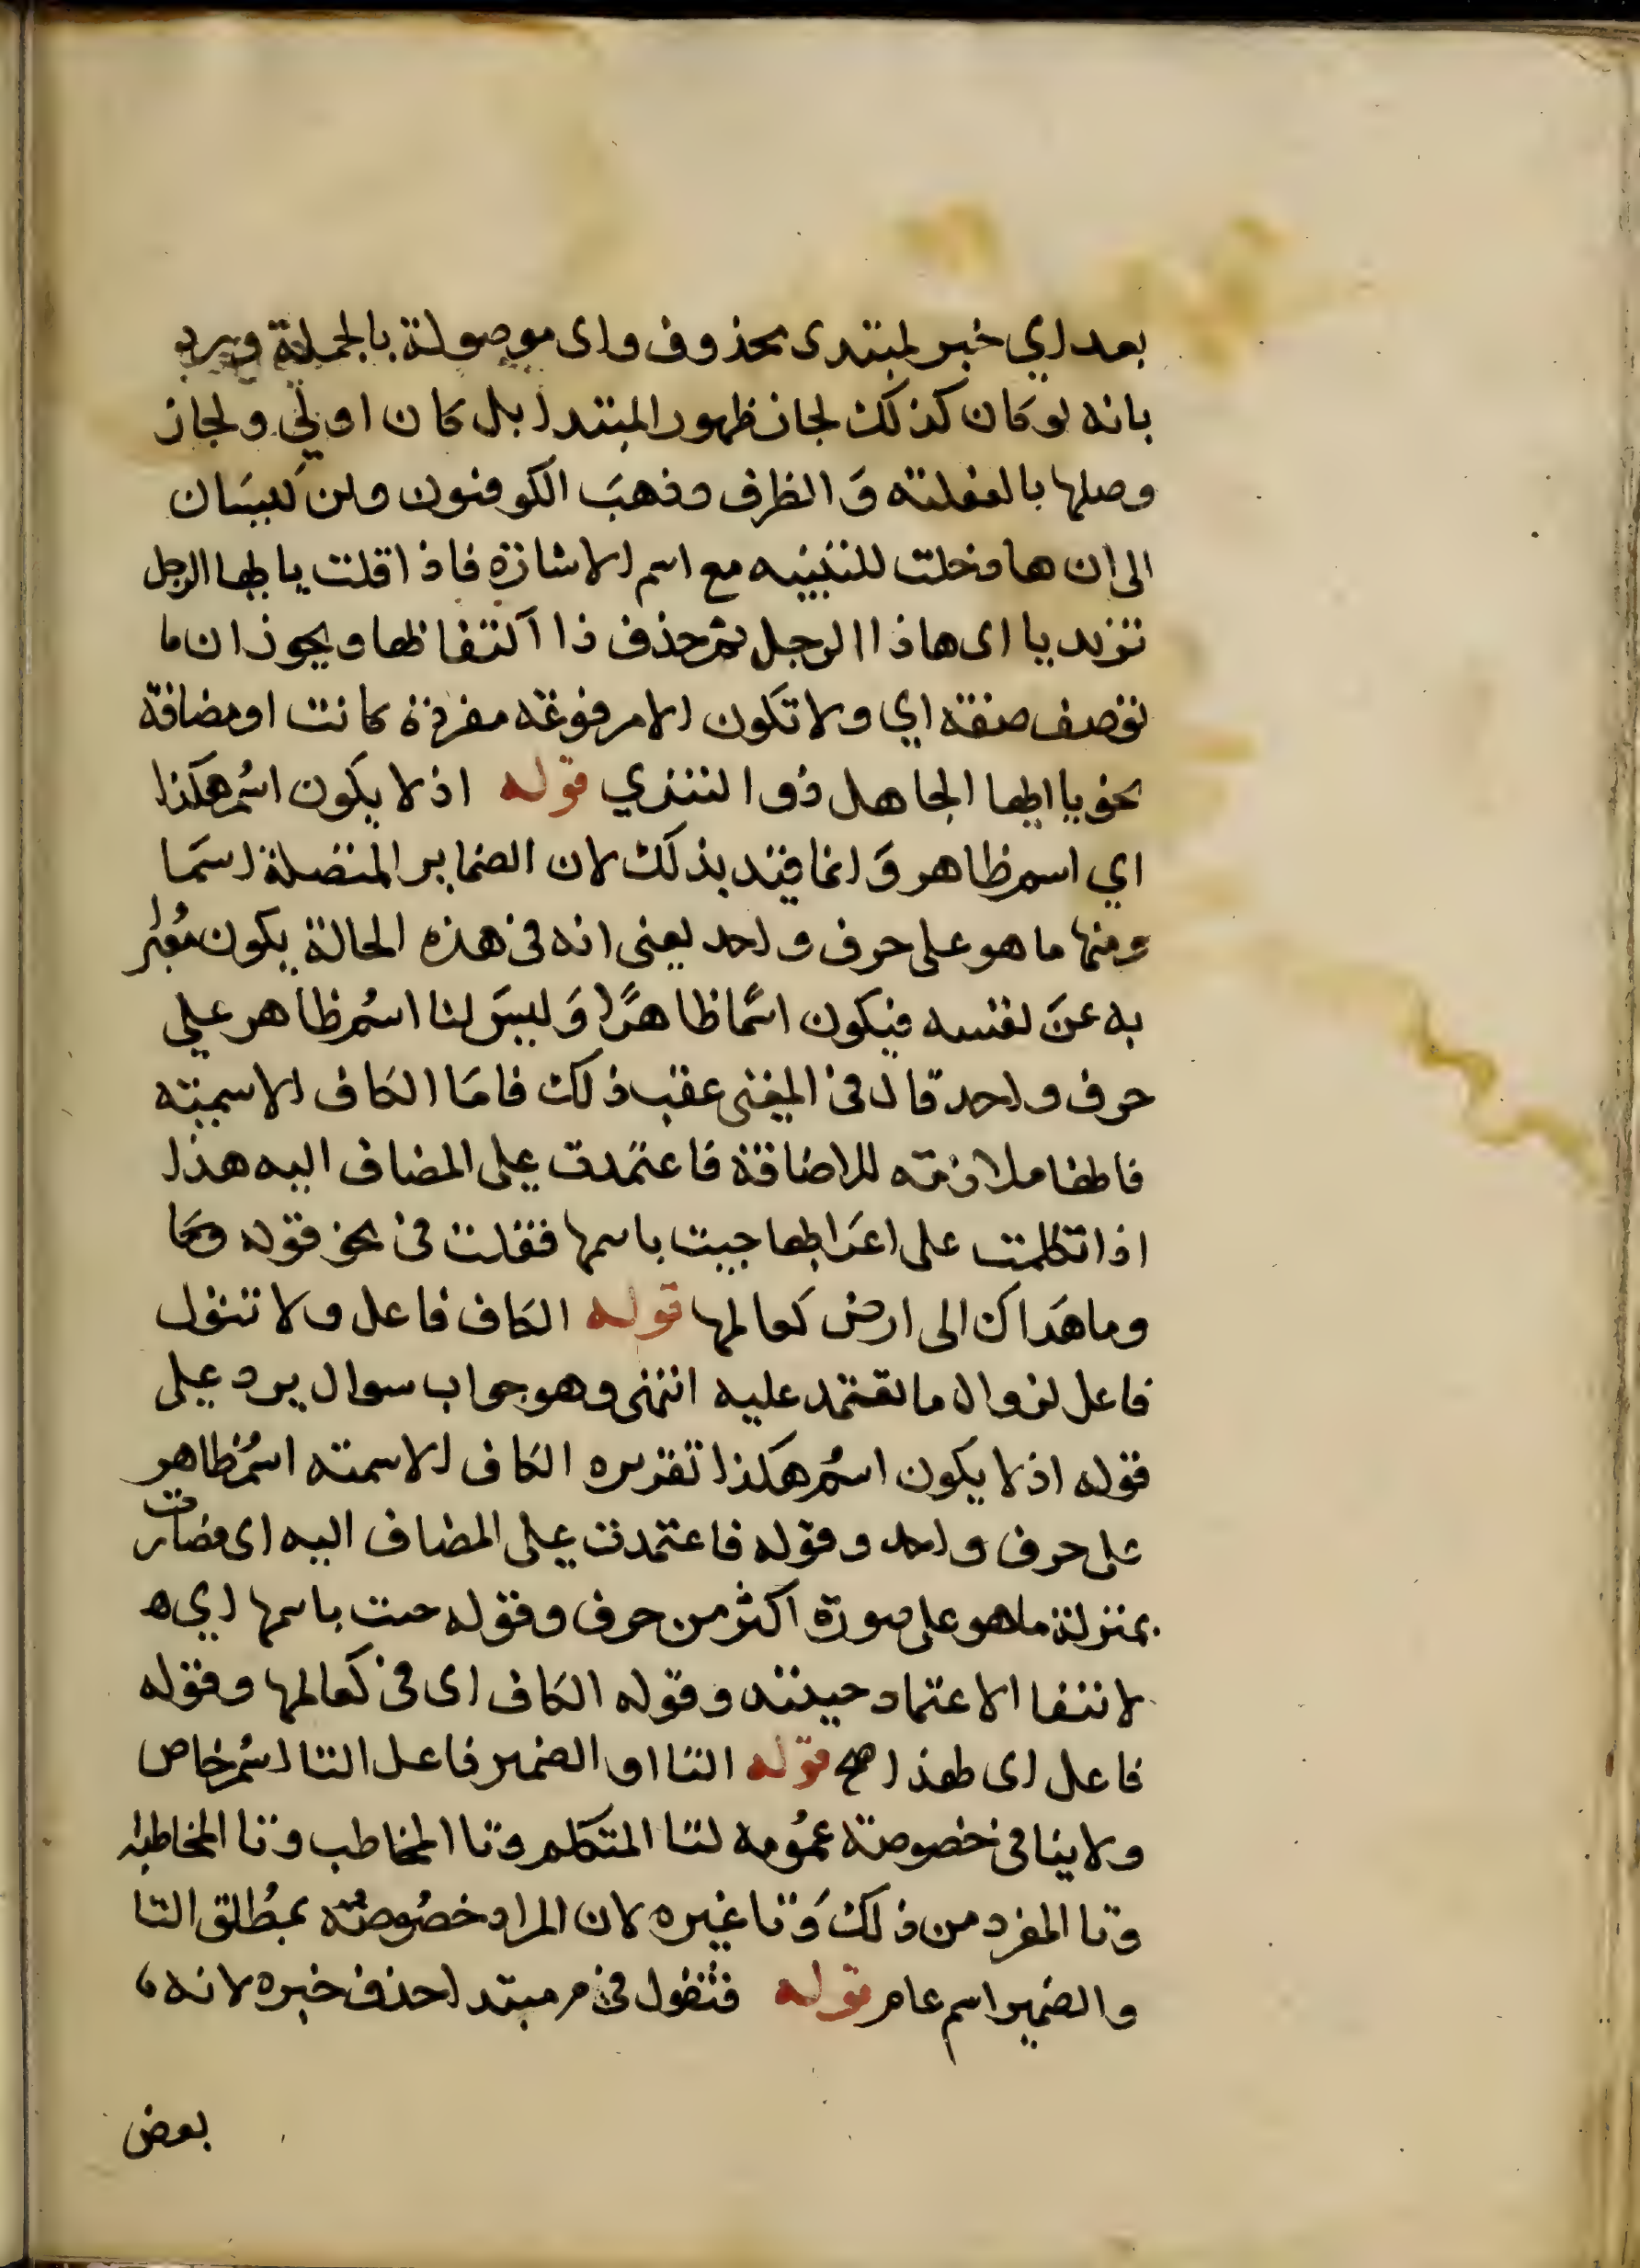 بعد اي خبر لمبتدى محذوف واى موصولة بالجملة ويرد
بانه لو كان كذلك لجاز ظهور المبتدا بل كان اولي ولجاز
وصلها بالفعلية وَالظرف وذهبَ الكوفيون وابن كيسَان
الى ان ها دخلت للتنبيه مع اسم الاشارة فاذا قلت يا ايها الرجل
تريد يا اى هاذا الرجل ثم حذف ذا اكتفا بها ويجوز ان ما
توصف صفة اي ولا تكون الا مرفوعة مفردة كانت او مضافة
نحو يا ايها الجاهل ذو التنزي قوله اذ لا يكون اسُم هكذا
اي اسم ظاهر وَانما قيد بذلك لان الضماير المتصلة اسَما
ومنها ما هو على حرف واحد يعنى انه فى هذه الحالة يكون مُعبرا
به عنَ نفسه فيكون اسًما ظاهرًا وَليسَ لنا اسُم ظاهر علي
حرف واحد قال فى المغنى عقب ذلك فامَا الكاف الاسمية
فانها ملازمة للاضافة فاعتمدت على المضاف اليه هذا
اذا تكلمت على اعرَابها جيت باسمها فقلت فى نحو قوله
وما هَداك الى ارض كعالمها قوله الكاف فاعل ولا تقول
فاعل لزوال ما تعتمد عليه انتهى وهو جواب سوال يرد على
قوله اذ لا يكون اسُم هكذا تقريره الكاف الاسمية اسُم ظاهر
على حرف واحد وقوله فاعتمدت على المضاف اليه اى فصارت
بمنزلة ما هو على صورة اكثر من حرف وقوله جيت باسمها اي ه
لانتفا الاعتماد حينئذ وقوله الكاف اى فى كعالمها وقوله
فاعل اى لهذا صح قوله التا او الضمير فاعل التا اسُم خاص
ولا ينافى خصوصة عمُومه لتا المتكلم وتا المخاطب وتا المخاطبة
وتا المفرد من ذلك وَتا غيره لان المراد خصُوصُه بمُطلق التا
والضمير اسم عام قوله فتقول فى م مبتدا حذف خبره لانه
بعض